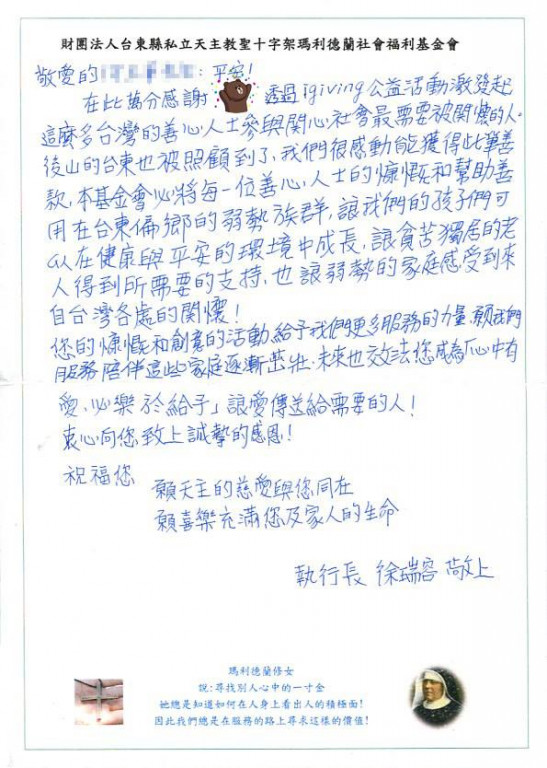 財團法人台東縣私立天主教聖十字架瑪利德蘭社會福利基金會
敬愛的 : 平安!
在此萬分感謝 透過igiving公益活動激發起
這麼多台灣的善心人士參與關心社會最需要被關懷的人。
後山的台東也被照顧到了,我們很感動能獲得此筆善
款,本基金會必將每一位善心人士的慷慨和幫助善
用在台東偏鄉的弱勢族群,讓我們的孩子們可
以在健康與平安的環境中成長,讓貧苦獨居的老
人得到所需要的支持,也讓弱勢的家庭感受到來
自台灣各處的關懷!
您的慷慨和創意的活動給予我們更多服務的力量,願我們
服務陪伴這些家庭逐漸茁壯,未來也效法您成為「心中有
愛,必樂於給予」讓愛傳送給需要的人!
衷心向您致上誠摯的感恩!
祝福您
願天主的慈愛與您同在
願喜樂充滿您及家人的生命
執行長 徐瑞容 敬上
瑪利德蘭修女
說:尋找別人心中的一寸金
她總是知道如何在人身上看出人的積極面!
因此我們總是在服務的路上尋求這樣的價值!